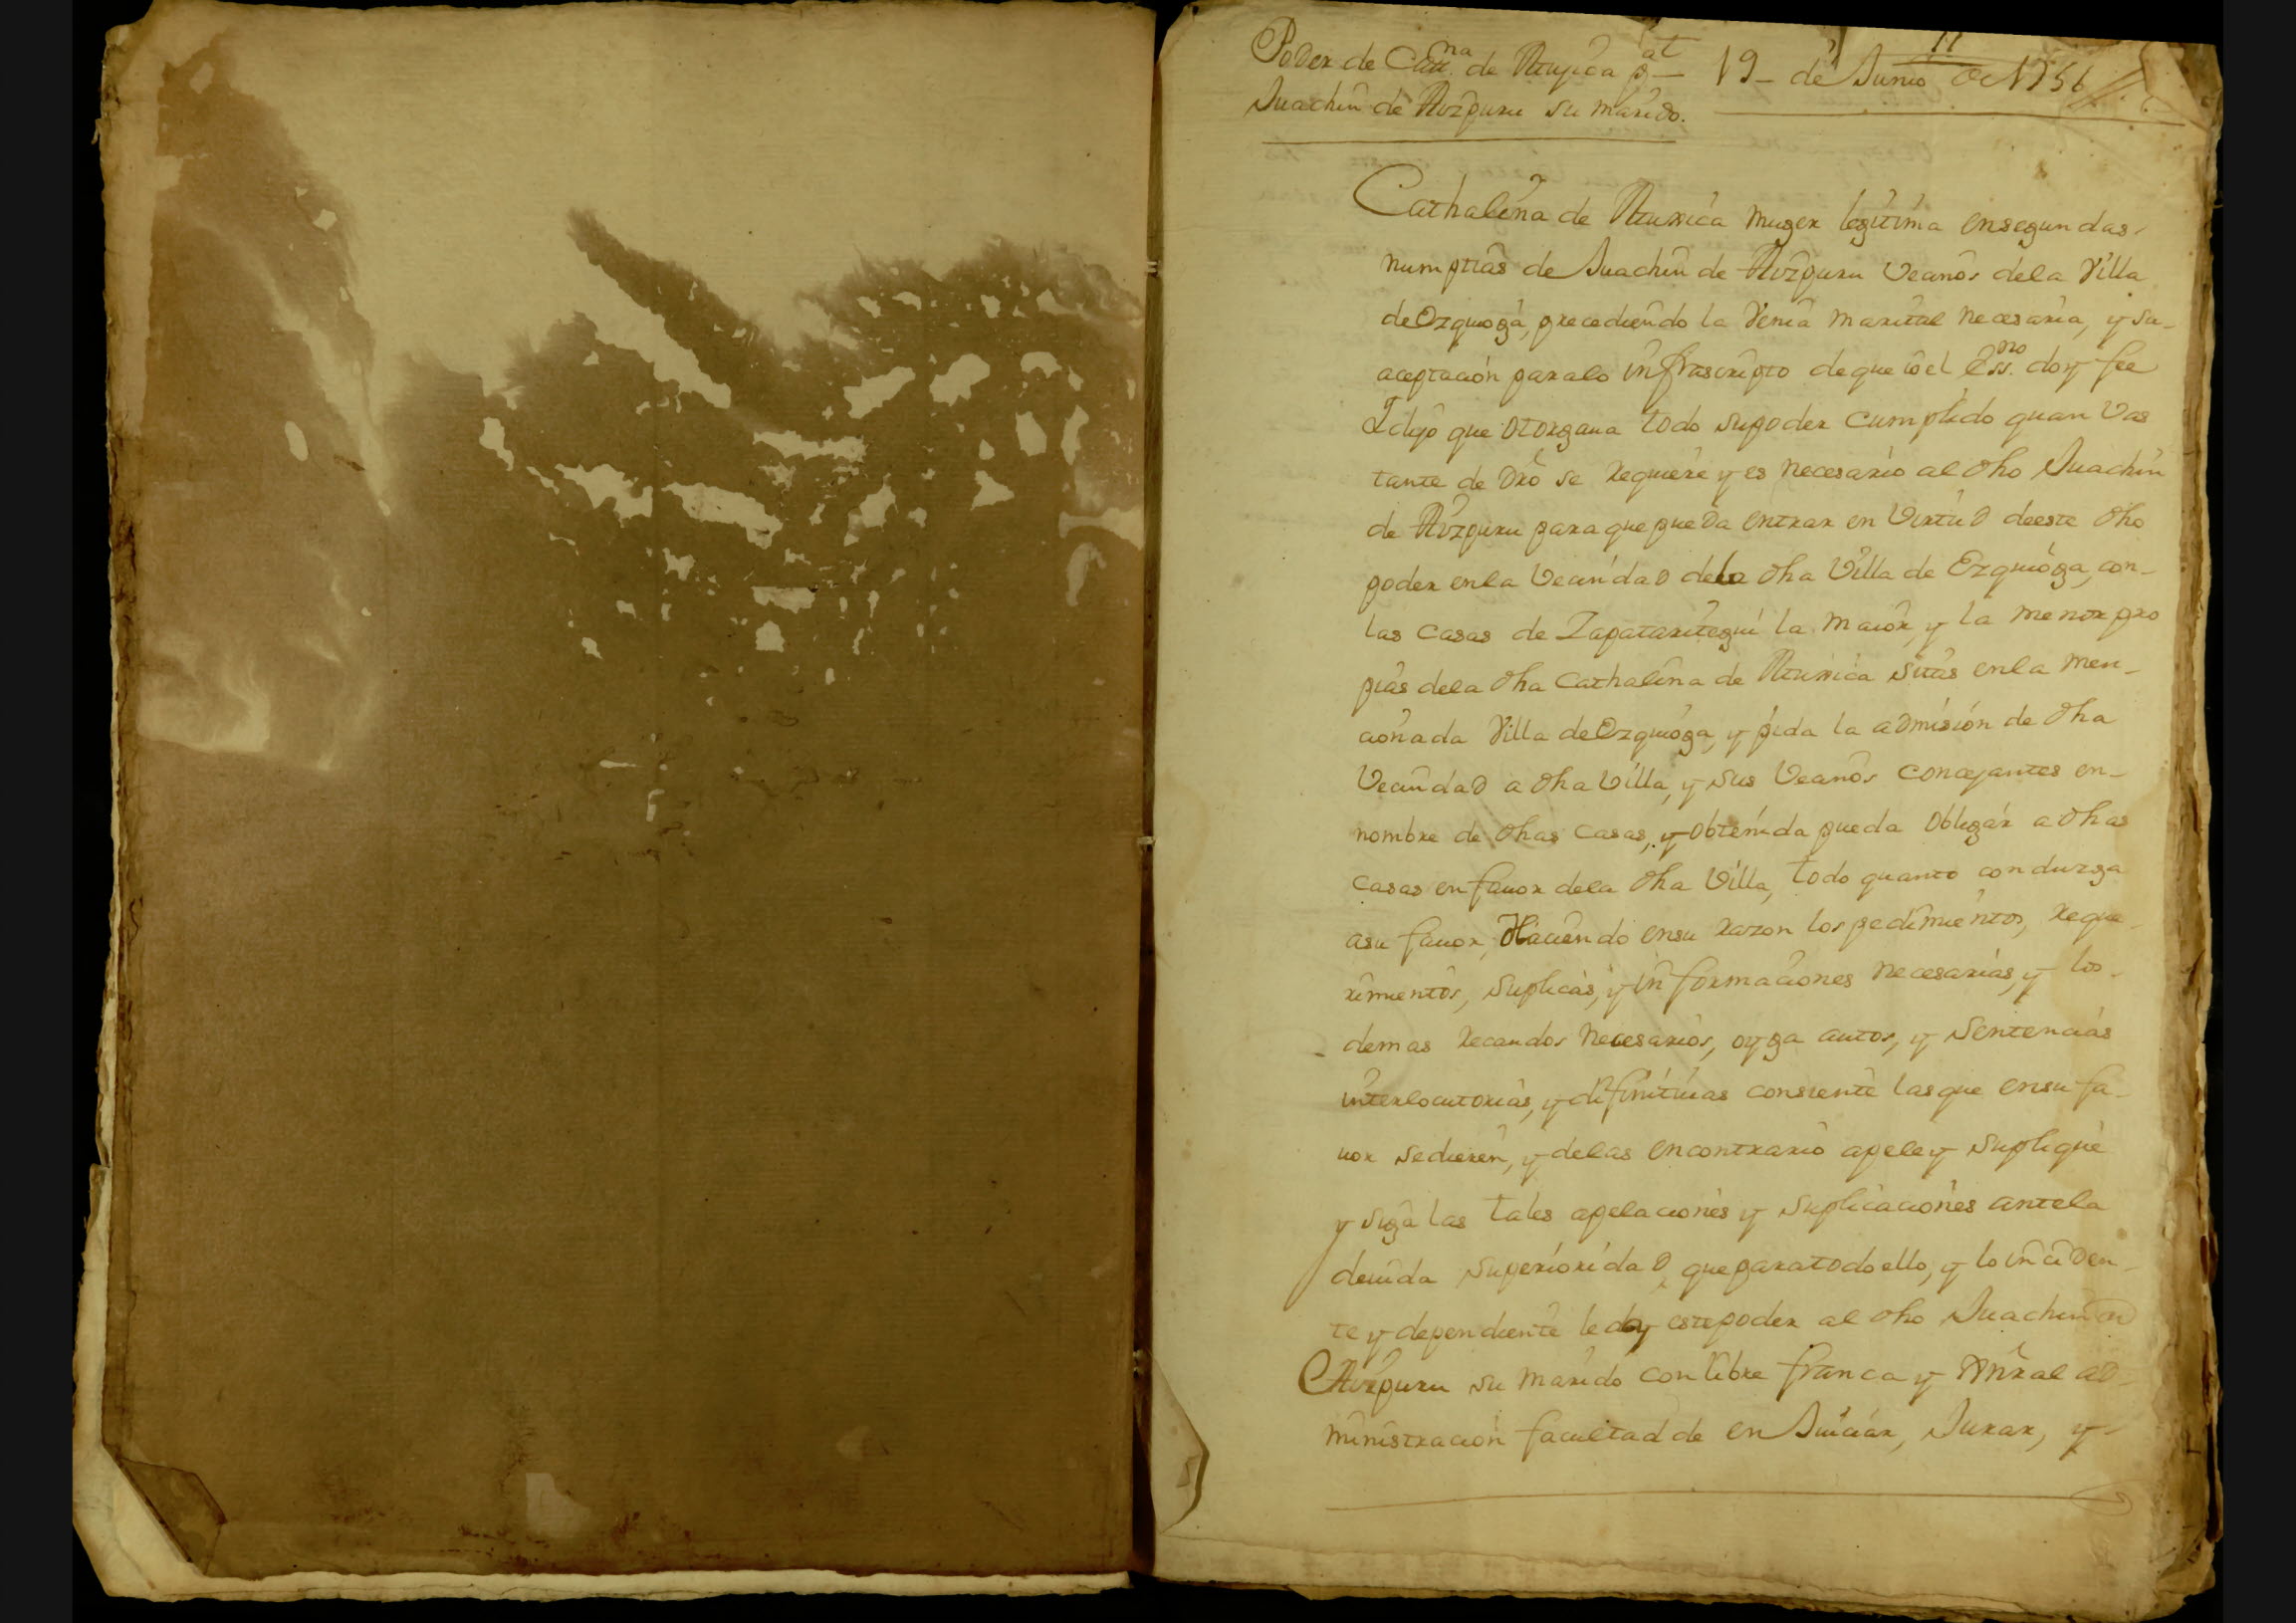 Poder de Catt.na de Aturrica pat 19 - de Junio de 1756
Juachin de Aizpuru su marido.
Cathalina de Aturrica muger legitima en segundas
numptias de Juachin de Aizpuru vecinos dela Villa
de Ezquioga, precediendo la venia marital necesaria, y su
aceptacion paralo infrascripto de que io el Ess.no doy fee
I dijo que otorgaua todo supoder cumplido quan vas
tante de dro se requiere y es necesario al dho Juachin
de Aizpuru paraque pueda entrar en virtud deeste dho
poder enla vecindad dela dha Villa de Ezquioga, con
las casas de Zapataritegui la maior, y la menor pro
pias dela dha Cathalina de Aturrica sitas enla men
cionada Villa de Ezquioga, y pida la admision de dha
vecindad a dha Villa, y sus vecinos concejantes en
nombre de dhas casas, y obtenida pueda obligar a dhas
casas en fauor dela dha Villa, todo quanto conduzga
asu fauor, Haciendo ensu razon los pedimientos, reque
rimientos, suplicas, y informaciones necesarias, y los
demas recaudos necesarios, oyga autos, y sentencias
interlocutorias, y difinitiuas consiente lasque ensu fa
uor sedieren, y delas encontrario apele y suplique
y siga las tales apelaciones y suplicaciones antela
deuida superioridad, que paratodo ello, y lo inciden
te y dependiente le doy estepoder al dho Juachin de
Aizpuru su marido con libre franca y gnral ad
ministracion facultad de enjuiciar, Jurar, y